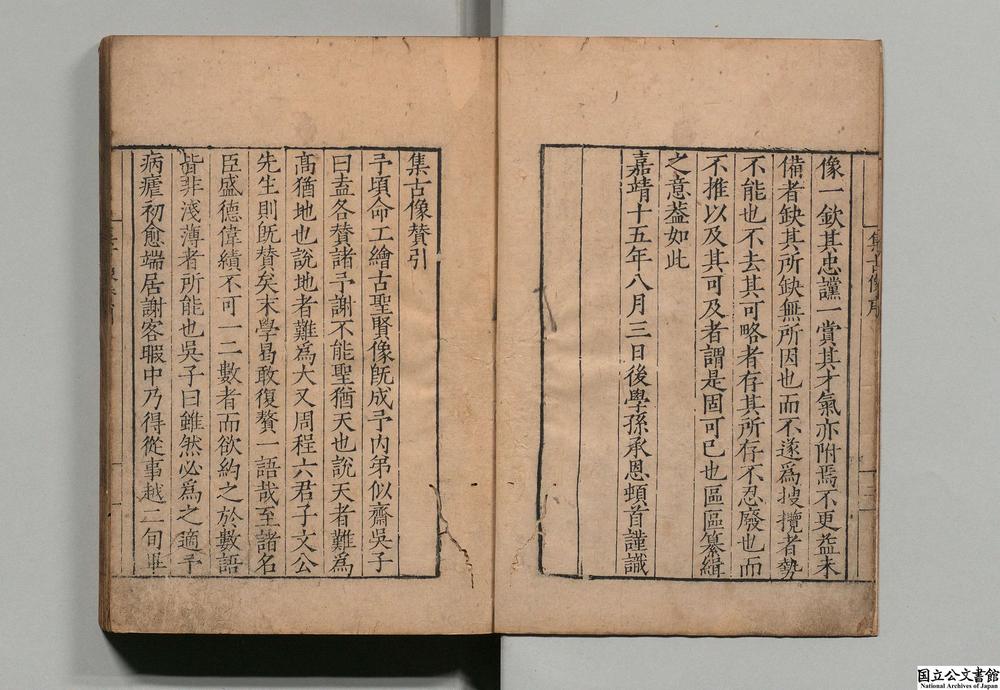 像一欽其忠讜一賞其才氣亦附焉不更益未
備者缺其所缺無所因也而不遂爲搜攬者勢
不能也不去其可略者存其所存不忍廢也而
不推以及其可及者謂是固可已也區區纂緝
之意葢如此
嘉靖十五年八月三日後學孫承恩頓首謹識
集古像賛引
予頃命工繪古聖賢像旣成予內弟似齋吳子
曰盍各賛諸予謝不能聖猶天也說天者難爲
髙猶地也說地者難爲大又周程六君子文公
先生則旣賛矣末學曷敢復贅一語哉至諸名
臣盛德偉績不可一二數者而欲約之於數語
皆非淺薄者所能也吳子曰雖然必爲之適予
病瘧初愈端居謝客暇中乃得從事越二旬畢
国立公文書館
National Archives of Japan